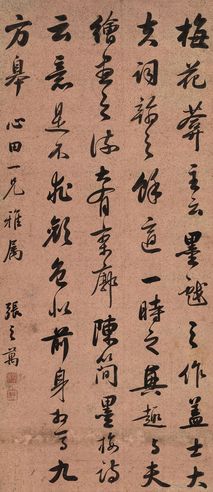 梅花菴主云墨戲之作蓋士大
夫詞翰之餘適一時之興趣与夫
繪畫之流大有寥廓陳簡墨梅詩
云意足不求顏色似前身相馬九
方皋 心田一兄雅属 張之萬